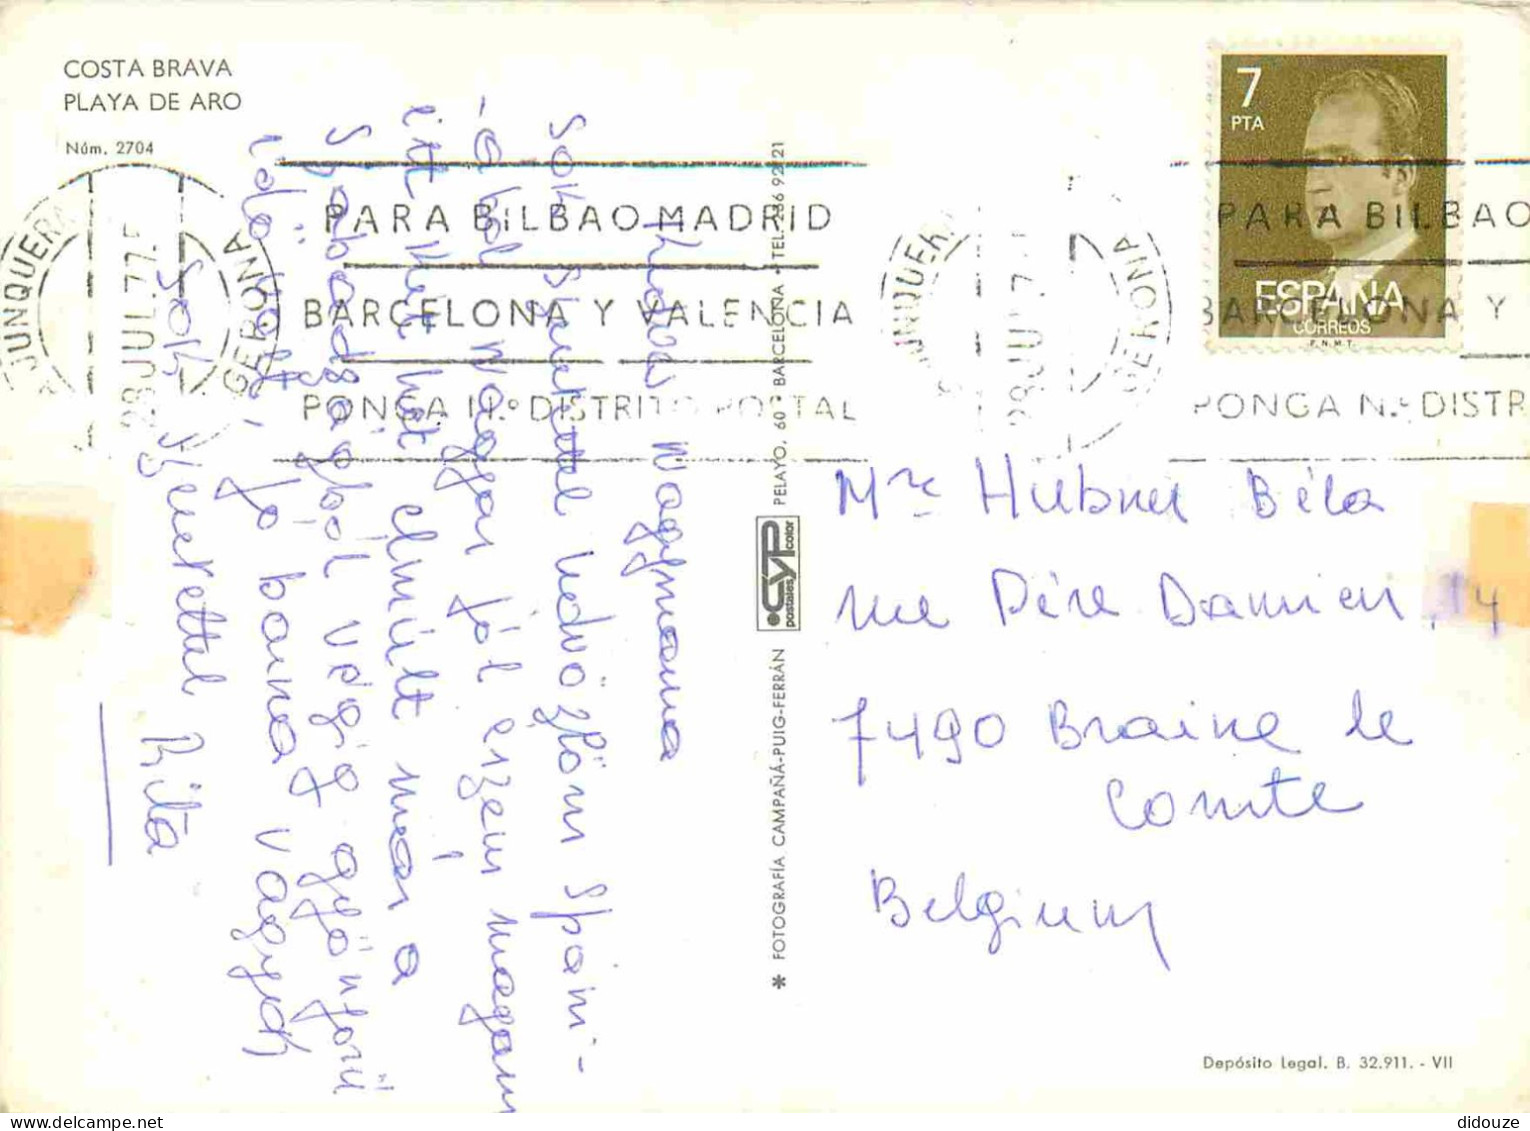 COSTA BRAVA
PLAYA DE ARO
Núm. 2704
JUNQUERA
28 JUL. 77
GERONA
PARA BILBAO MADRID
BARCELONA Y VALENCIA
PONGA N.º DISTRITO POSTAL
JUNQUERA
28 JUL. 7
GERONA
PARA BILBAO
BARCELONA Y
PONGA N.º DISTR
7
PTA
ESPAÑA
CORREOS
F.N.M.T.
Nagymama
Sok szeretettel üdvözlöm Spani-
nagyon jól érzem magam
itt két hét elmúlt már a
Szabadságból végig gyönyörü
idö volt, jo barna vagyok
Sok szeretettel
Rita
* FOTOGRAFÍA CAMPAÑÁ-PUIG-FERRÁN
CYP
postales color
PELAYO, 60 - BARCELONA - TEL. 236 92 21
Mr Hübner Béla
rue Père Damien, 14
7490 Braine le
Comte
Belgium
Depósito Legal. B. 32.911. - VII
didouze